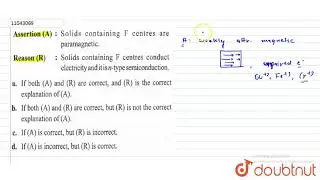 11043069
Assertion (A) : Solids containing F centres are
paramagnetic.
Reason (R) : Solids containing F centres conduct
electricity and it is n-type semiconduction.
a. If both (A) and (R) are correct, and (R) is the correct
explanation of (A).
b. If both (A) and (R) are correct, but (R) is not the correct
explanation of (A).
c. If (A) is correct, but (R) is incorrect.
d. If (A) is incorrect, but (R) is correct.
A: weakly magnetic
doubtnut